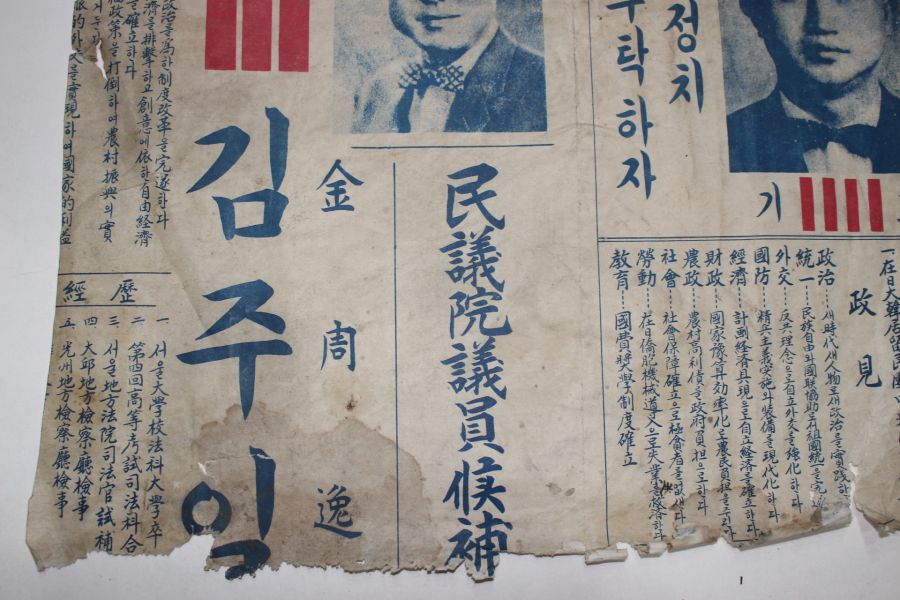 정치
부탁하자
기
一在日大韓居留民團中央
政見
政治 새時代새人物로새政治를實踐하
統一 民族自由와國聯協助로서祖國統一을完遂
外交 反共理念으로自立外交를强化하다
國防 精兵主義实施와裝備를現代化하다
經濟 計劃經済具現으로自立経済를確立하다
財政 國家豫算効率化로農民負担을주리
農政 農村高利債를政府負担으로하다
社會 社會保障確立으로極貧者를없새다
勞動 在日僑胞機械導入으로失業을救済하다
教育 國費奬學制度確立
民議院議員候補
金周逸
김주일
政治를爲한制度改革을完遂하다
濟를排擊하고創意에依한自由経済
를確立하다
政策을打倒하여農村振興의實
的外交를實現하여國家的利益
經歷
一 서울大学校法科大學卒
二 第四回高等考試司法科合
三 서울地方法院司法官試補
四 大邱地方檢察廳檢事
五 光州地方檢察廳檢事